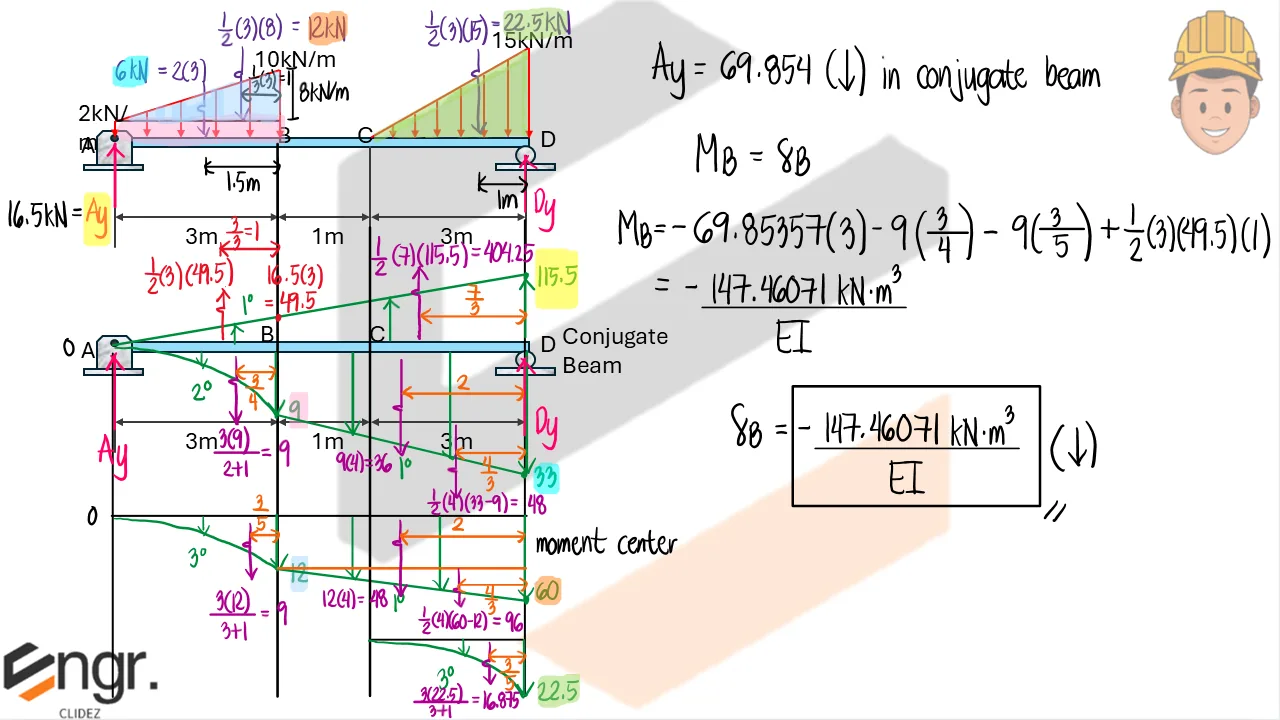 ½(3)(8) = 12kN
½(3)(15) = 22.5kN
15kN/m
6kN = 2(3)
10kN/m
⅓(3)=1
8kN/m
2kN/
m
A
B
C
D
1.5m
1m
16.5kN = Ay
Dy
3/3=1
3m
1m
3m
½(7)(115.5) = 404.25
½(3)(49.5)
16.5(3)
= 49.5
1°
115.5
7/3
0 A
B
C
D
Conjugate
Beam
2°
3/4
9
2
Ay
3m
1m
3m
Dy
3(9)/2+1 = 9
9(4)=36
1°
4/3
33
½(4)(33-9) = 48
0
3/5
3°
2
moment center
12
60
3(12)/3+1 = 9
12(4)=48
1°
4/3
½(4)(60-12) = 96
3°
3/5
22.5
3(22.5)/3+1 = 16.875
Ay = 69.854 (↓) in conjugate beam
MB = δB
MB = - 69.85357(3) - 9(3/4) - 9(3/5) + ½(3)(49.5)(1)
= - 147.46071 kN·m³/EI
δB = - 147.46071 kN·m³/EI (↓)
Engr.
CLIDEZ